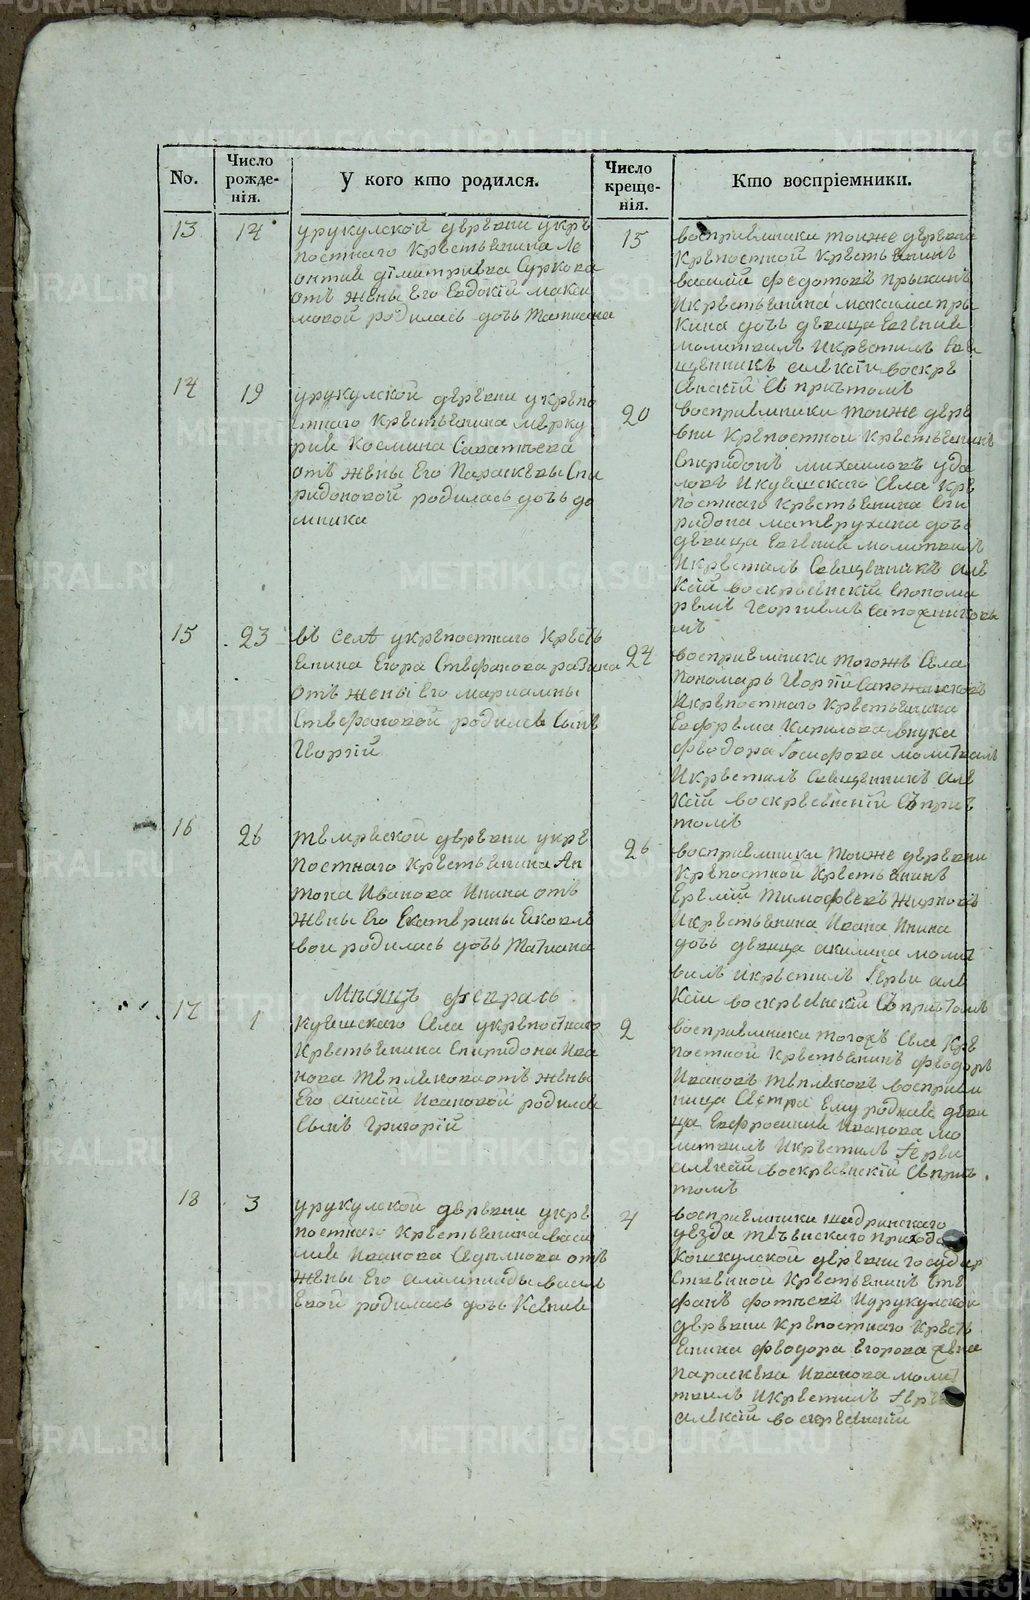 METRIKI.GASO-URAL.RU
No.
Число рожде-нія.
У кого кто родился.
Число креще-нія.
Кто воспріемники.
13
14
урукулской дѣрѣвни укрѣ
постнаго крѣстьянина Ле
онтия димитриева Суркова
отъ жены Его Евдокій макси
мовой родилась дочь
15
восприемники тоиже дѣрѣвни
крѣпостной крѣстьянинъ
василій федотовъ
икрѣстьянина максима
кина дочь дѣвица Евгения
молитвилъ икрѣстилъ Свя
щенникъ алѣксій воскрѣ
сѣнскій съ причтомъ
14
19
урукулской дѣрѣвни укрѣпо
стнаго крѣстьянина мѣрку
рия Космина Саватѣева
отъ жены Его Параскѣвы Спи
ридоновой родилась дочь до
мника
20
восприемники тоиже дѣрѣ
вни крѣпостной крѣстьянинъ
Спиридонъ михаиловъ уда
ловъ икуяшскаго сѣла крѣ
постнаго крѣстьянина Спи
ридона матвѣрухина дочь
дѣвица Евгения молитвилъ
икрѣстилъ Священникъ алѣ
ксій воскрѣсѣнскій спонома
рѣмъ Георгиемъ сапожниковы
мъ
15
23
въ сѣлѣ укрѣпостнаго крѣсть
янина Егора Стѣфанова разина
отъ жены Его мариамны
Стѣфановой родился сынъ
Иоргій
24
восприемники тогожъ сѣла
пономарь Иоргій Сапожниковъ
икрѣпостнаго крѣстьянина
Ефрѣма Кирилова внука
фѣодора Иосифова молитвилъ
икрѣстилъ священникъ алѣ
ксій воскрѣсѣнскій съ прич
томъ
16
26
тѣмряской дѣрѣвни укрѣ
постнаго крѣстьянина Ан
тона Иванова Инина отъ
жены Его Екатѣрины Яковлѣ
вои родилась дочь Татиана
26
восприемники тоиже дѣрѣвни
крѣпостной крѣстьянинъ
Ерѣмѣй Тимофѣевъ Жирновъ
икрѣстьянина Ивана Инина
дочь дѣвица акилина молит
вилъ икрѣстилъ Иѣрѣи алѣ
ксіи воскрѣсѣнскій съ причтомъ
Мѣсяцъ фѣвраль
17
1
Куяшскаго сѣла укрѣпостнаго
крѣстьянина Спиридона Ива
нова Тѣплякова отъ жены
Его анисіи Ивановой родился
сынъ Григорій
2
восприемники тогожъ сѣла крѣ
постной крѣстьянинъ фѣодоръ
Ивановъ Тѣпляковъ восприем
ница Сѣстра Ему родная дѣви
ца Евфросиния Иванова мо
литвилъ икрѣстилъ Iѣрѣи
алѣксій воскрѣсѣнскій съ прич
томъ
18
3
урукулской дѣрѣвни укрѣ
постнаго крѣстьянина васи
лия Иванова Сѣдѣлкова отъ
жены Его алимпиады васил
ѣвой родилась дочь Ксѣния
4
восприемники шадринскаго
уѣзда тѣчѣнскаго прихода
Кошкулской дѣрѣвни государ
ствѣнной крѣстьянинъ стѣ
фанъ фотѣевъ иурукулской
дѣрѣвни крѣпостнаго крѣсть
янина фѣодора Егорова жена
параскѣва Иванова молит
твилъ икрѣстилъ Iѣрѣи
алѣксій воскрѣсѣнскій